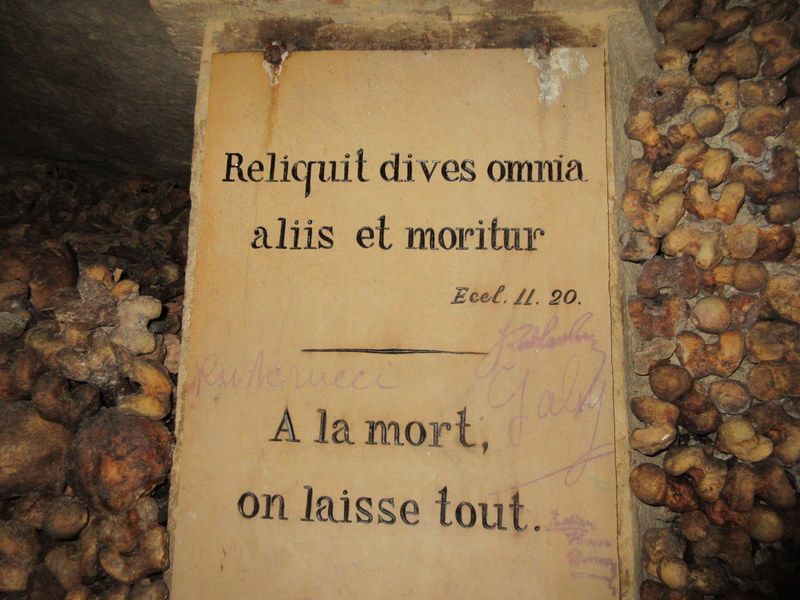 Reliquit dives omnia
aliis et moritur
Eccl. 11. 20.
A la mort,
on laisse tout.